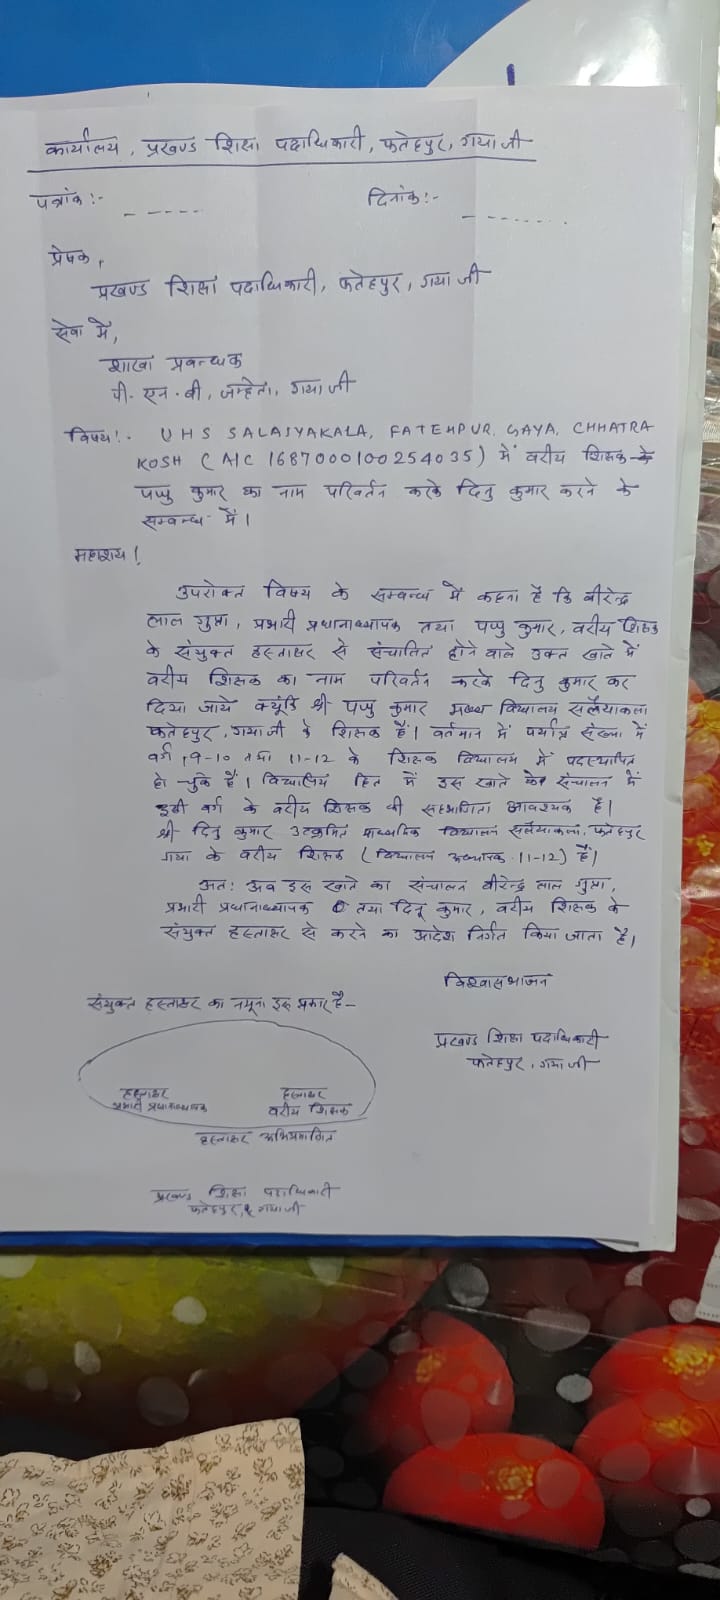 कार्यालय, प्रखण्ड शिक्षा पदाधिकारी, फतेहपुर, गया जी
पत्रांक :- ------
दिनांक :- -------
प्रेषक,
प्रखण्ड शिक्षा पदाधिकारी, फतेहपुर, गया जी
सेवा में,
शाखा प्रबन्धक
पी. एन. बी, जम्हेता, गया जी
विषय :- UHS SALAIYAKALA, FATEHPUR, GAYA, CHHATRA
KOSH (A/C 1687000100254035) में वरीय शिक्षक
पप्पु कुमार का नाम परिवर्तन करके दिनु कुमार करने के
सम्बन्ध में।
महाशय!
उपरोक्त विषय के सम्बन्ध में कहना है कि बीरेन्द्र
लाल गुप्ता, प्रभारी प्रधानाध्यापक तथा पप्पु कुमार, वरीय शिक्षक
के संयुक्त हस्ताक्षर से संचालित होने वाले उक्त खाते में
वरीय शिक्षक का नाम परिवर्तन करके दिनु कुमार कर
दिया जाये क्यूंकि श्री पप्पु कुमार मध्य विद्यालय सलैयाकला
फतेहपुर, गया जी के शिक्षक हैं। वर्तमान में पर्याप्त संख्या में
वर्ग 9-10 तथा 11-12 के शिक्षक विद्यालय में पदस्थापित
हो चुके हैं। विद्यालय हित में इस खाते के संचालन में
इसी वर्ग के वरीय शिक्षक की सहभागिता आवश्यक है।
श्री दिनु कुमार उत्क्रमित माध्यमिक विद्यालय सलैयाकला, फतेहपुर
गया के वरीय शिक्षक (विद्यालय अध्यापक 11-12) हैं।
अतः अब इस खाते का संचालन बीरेन्द्र लाल गुप्ता,
प्रभारी प्रधानाध्यापक तथा दिनू कुमार, वरीय शिक्षक के
संयुक्त हस्ताक्षर से करने का आदेश निर्गत किया जाता है।
विश्वासभाजन
संयुक्त हस्ताक्षर का नमूना इस प्रकार है-
प्रखण्ड शिक्षा पदाधिकारी
फतेहपुर, गया जी
हस्ताक्षर हस्ताक्षर
प्रभारी प्रधानाध्यापक वरीय शिक्षक
हस्ताक्षर अभिप्रमाणित
प्रखण्ड शिक्षा पदाधिकारी
फतेहपुर, गया जी